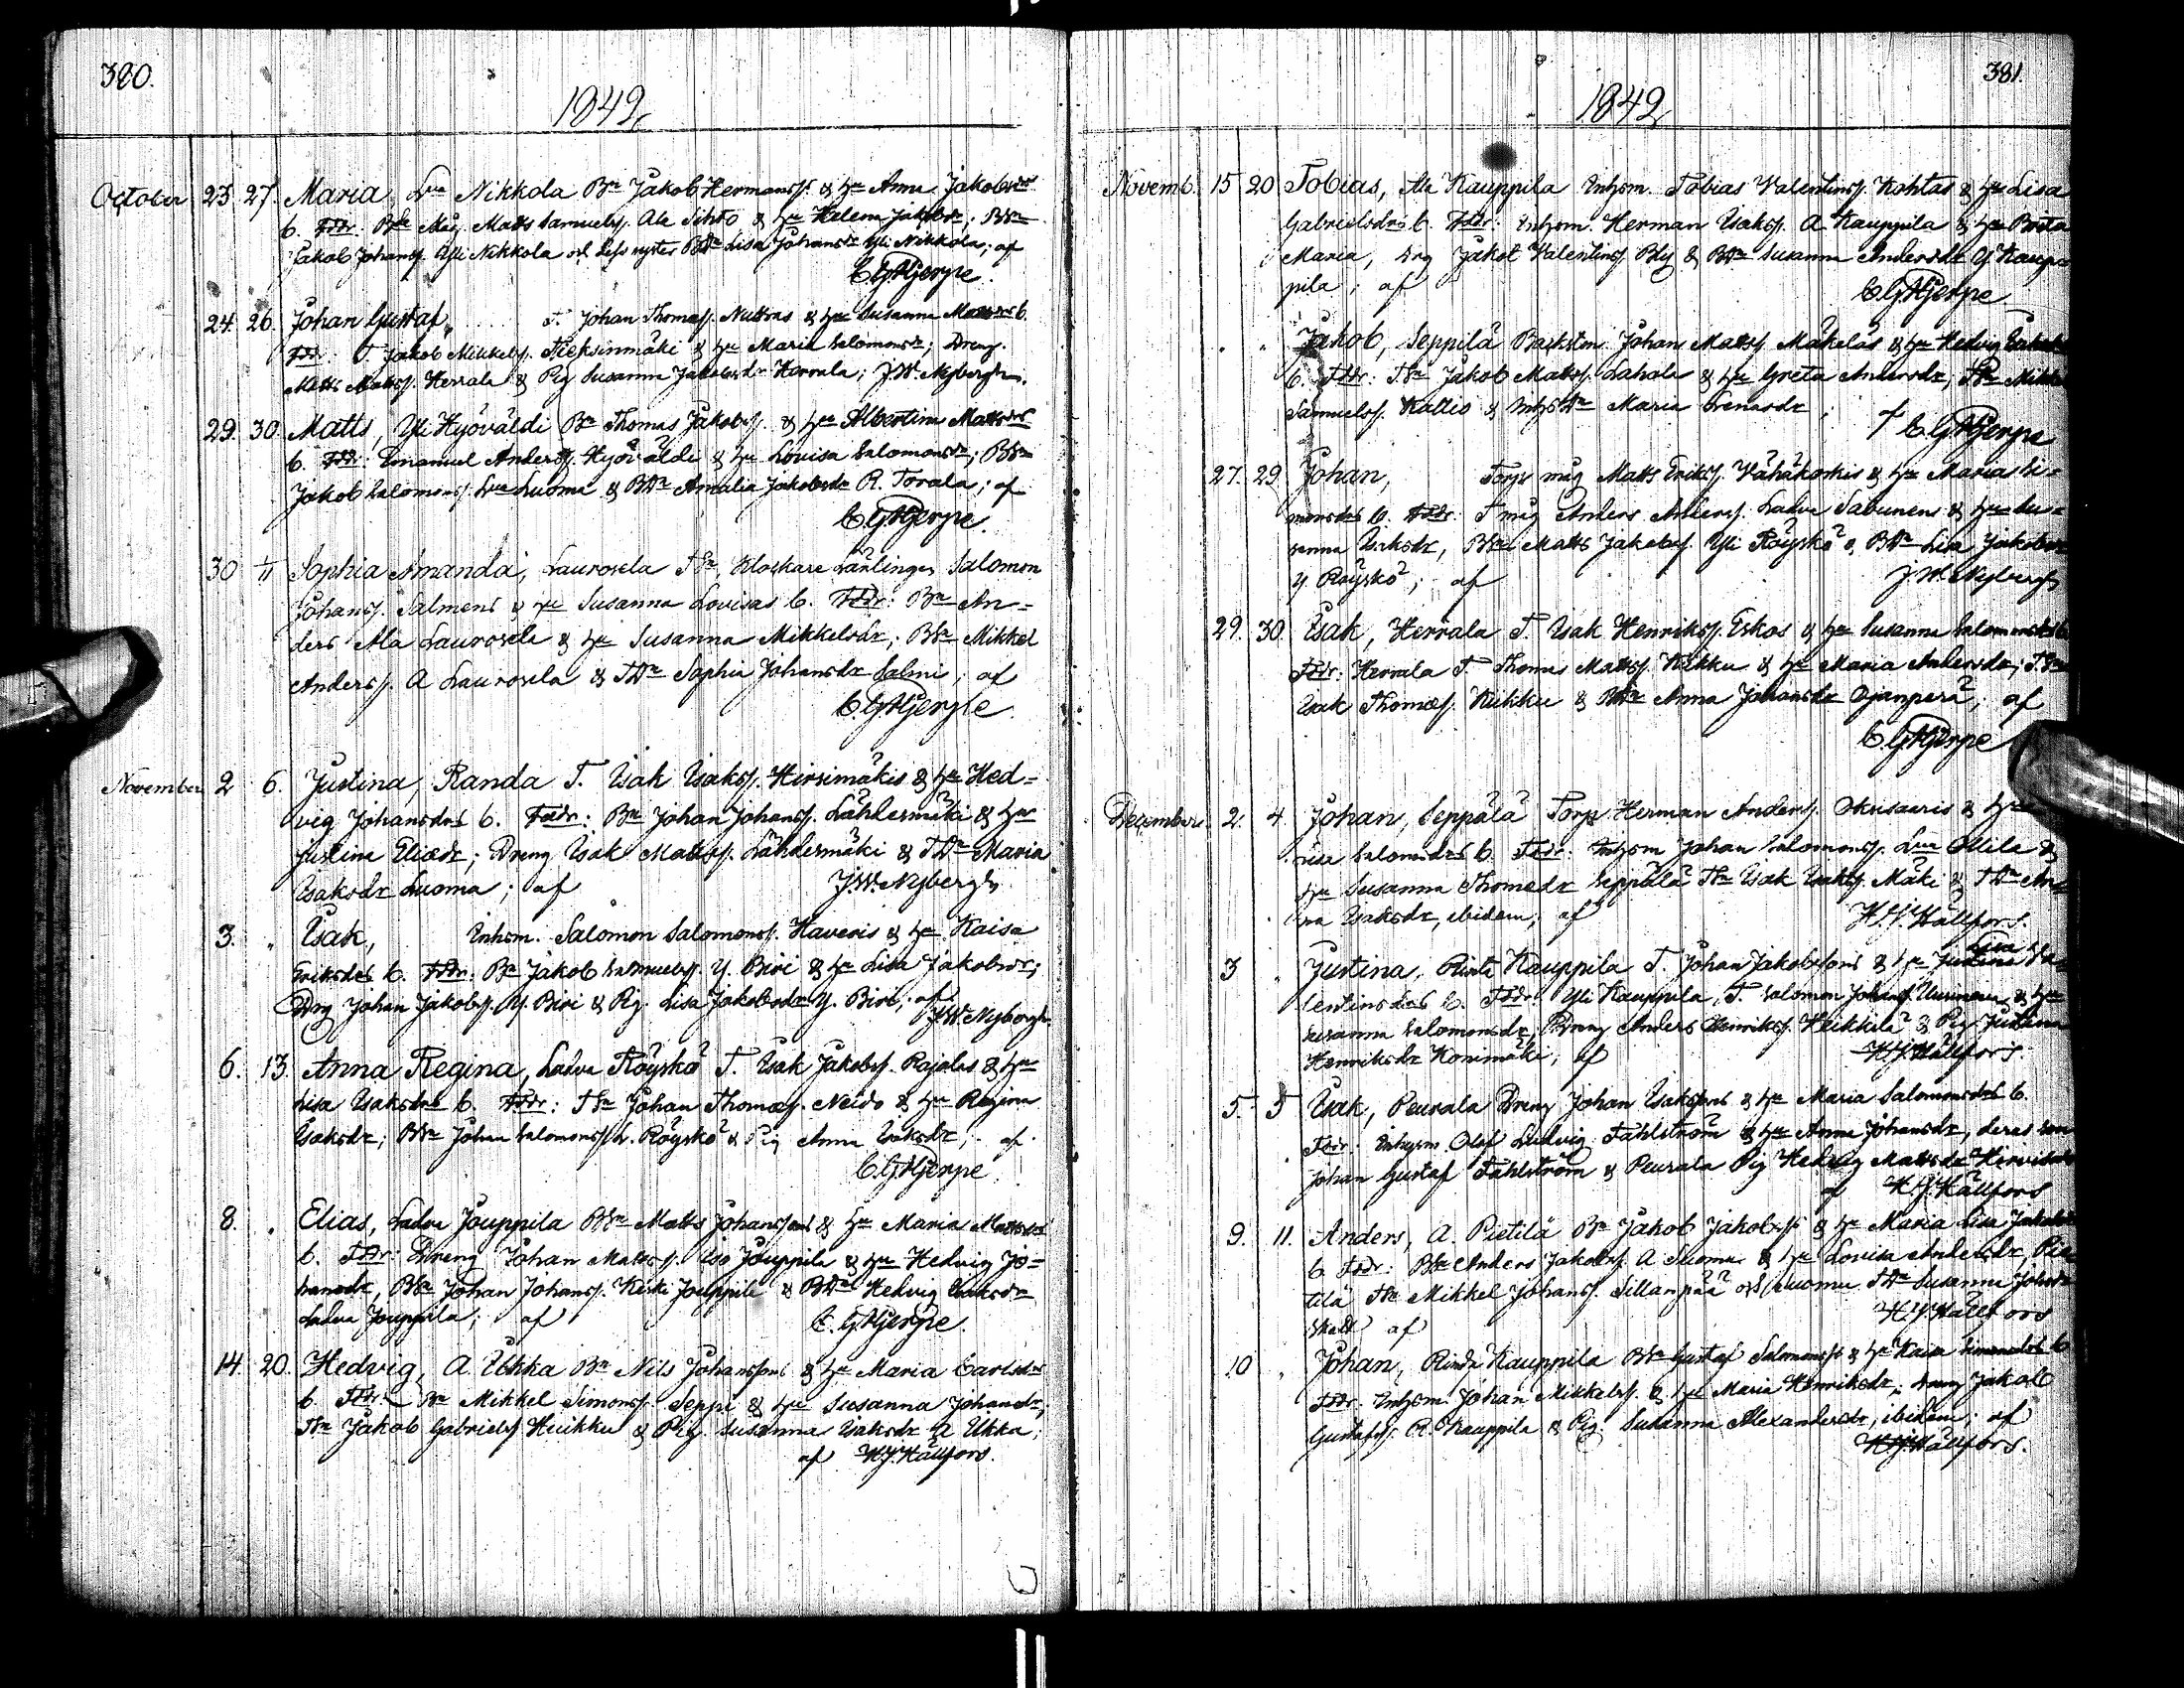 380.
1842
October 23. 27. Maria, Lua Nikkola Bn Jakob Hermanss. & hu Anna Jakobsdrs
b. Fddr: Bde Måg. Matts Samuelss. Ala Sihto & hu Helena Jakobsdr; BSn
Jakob Johanss. Yli Nikkola och dess syster BDr Lisa Johansdr Yli Nikkola; af
C.G.Hjerpe.
24. 26. Johan Gustaf, T. Johan Thomass. & hu Susanna Mattsdrs b.
Fddr: T. Jakob Mikkelss. & hu Maria Salomonsdr; Dreng.
Matts Mattss. Herrala & Pig Susanna Jakobsdr Herrala; J.W. Nybergh.
29. 30. Matts, Yli Hyöväldi Bn Thomas Jakobss. & hu Albertina Mattsdrs
b. Fddr: Emanuel Anderss. Hyöväldi & hu Lovisa Salomonsdr; BSn
Jakob Salomonss. Lua Luoma & BDr Amalia Jakobsdr R. Torala; af
C.G.Hjerpe.
30 1/11 Sophia Amanda, Laurosela TSn, Klockare Lärlingen Salomon
Johanss. Salmens & hu Susanna Lovisas b. Fddr: Bn An=
ders Ala Laurosela & hu Susanna Mikkelsdr; BSn Mikkel
Anderss. A Laurosela & TDr Sophia Johansdr Salmi; af
C.G.Hjerpe.
November 2 6. Justina, Randa T. Isak Isakss. Hirsimäkis & hu Hed=
vig Johansdrs b. Fddr: Bn Johan Johanss. Lähdesmäki & hu
Justina Eliædr; Dreng Isak Mattss. Lähdesmäki & TDr Maria
Isaksdr Luoma; af J.W. Nybergh.
3. " Isak, Inhsm. Salomon Salomonss. Haveris & hu Kaisa
Eriksdrs b. Fddr: Bn Jakob Samuelss. Y. Biri & hu Lisa Jakobsdr;
Drg Johan Jakobss. Y. Biri & Pig. Lisa Jakobsdr Y. Biri; af
J.W. Nybergh.
6. 13. Anna Regina, Ladva Röyskö T. Isak Jakobss. Rajalas & hu
Lisa Isaksdrs b. Fddr: TSn Johan Thomass. Neido & hu Regina
Isaksdr; BSn Johan Salomonss. L. Röyskö & Pig Anna Isaksdr; af
C.G.Hjerpe
8. " Elias, Ladva Jouppila BSn Matts Johanssons & hu Maria Mattsdrs
b. Fddr: Dreng Johan Mattss. Iso Jouppila & hu Hedvig Jo=
hansdr, BSn Johan Johanss. Keski Jouppila & BDr Hedvig Isaksdr
Ladva Jouppila; af C.G.Hjerpe.
14. 20. Hedvig, A. Ukka Bn Nils Johanssons & hu Maria Carlsdrs
b. Fddr: Bn Mikkel Simonss. Seppi & hu Susanna Johansdr;
TSn Jakob Gabrielss. Huikku & Pig. Susanna Isaksdr A Ukka;
af H.J. Hällfors.
381.
1842
Novemb. 15 20 Tobias, Ala Kauppila Inhsm. Tobias Valentinss. Kohtas & hu Lisa
Gabrielsdrs b. Fddr: Inhsm. Herman Isakss. A. Kauppila & hu Breta
Maria, Drg Jakob Valentinss. & BDr Susanna Andersdr Y Kaup=
pila; af C.G.Hjerpe
" " Jakob, Seppilä Backstm. Johan Mattss. Mäkeläs & hu Hedvig
b. Fddr: TSn Jakob Mattss. Lahala & hu Greta Andersdr, TSn Mikk
Samuelss. Kallio & InhsDr Maria; af C.G.Hjerpe
27. 29. Johan, Torps måg Matts Erikss. Vähäkoskis & hu Maria Si=
monsdrs b. Fddr: T. måg Anders Anderss. Ladva Sabunens & hu Su=
sanna Isaksdr, BSn Matts Jakobss. Yli Röyskö & BDr Lisa Jakobsdr
Y. Röyskö; af J.W. Nybergh
29. 30. Isak, Herrala T. Isak Henrikss. Eskos & hu Susanna Salomonsdrs b.
Fddr: Herrala T. Thomas Mattss. Kukku & hu Maria Andersdr; TSn
Isak Thomass. Kukku & BDr Anna Johansdr Ojanperä; af
C.G.Hjerpe
December 2. 4. Johan, Seppälä Torp. Herman Anderss. & hu
visa Salomonsdrs b. Fddr: Inhsm Johan Salomonss. Lua Ollila &
hu Susanna Thomædr Seppälä TSn Isak Isakss. Mäki & TDr An=
na Isaksdr, ibidem; af H.J. Hällfors.
3 " Justina, Rinta Kauppila T. Johan Jakobssons & hu Justina Lisa Va=
lentinsdrs b. Fddr: Yli Kauppila, T. Salomon Johanss. & hu
Susanna Salomonsdr, Dreng Anders Henrikss. Heikkilä & Pig Justina
Henriksdr Konimäki; af H.J. Hällfors.
5. 5 Isak, Peurala Dreng Johan Isakssons & hu Maria Salomonsdrs b.
Fddr: Inhysm Olof Ludvig Fahlström & hu Anna Johansdr, deras son
Johan Gustaf Fahlström & Peurala Pig Hedvig Mattsdr
af H.J. Hällfors
9. 11. Anders, A. Pietilä Bn Jakob Jakobss. & hu Maria Lisa Jakobs
b. Fddr: BSn Anders Jakobss. A Luoma & hu Lovisa Andersdr, Pie
tilä TSn Mikkel Johanss. Sillanpää och Luoma TDr Susanna Johsdr
af H.J. Hällfors
10 " Johan, Rinta Kauppila BSn Gustaf Salomonss. & hu Kaisa Simonsdrs b
Fddr. Inhsm. Johan Mikkelss. & hu Maria Henriksdr, Dreng Jakob
Gustafss. R. Kauppila & Pig. Susanna Alexandersdr, ibidem; af
H.J. Hällfors.